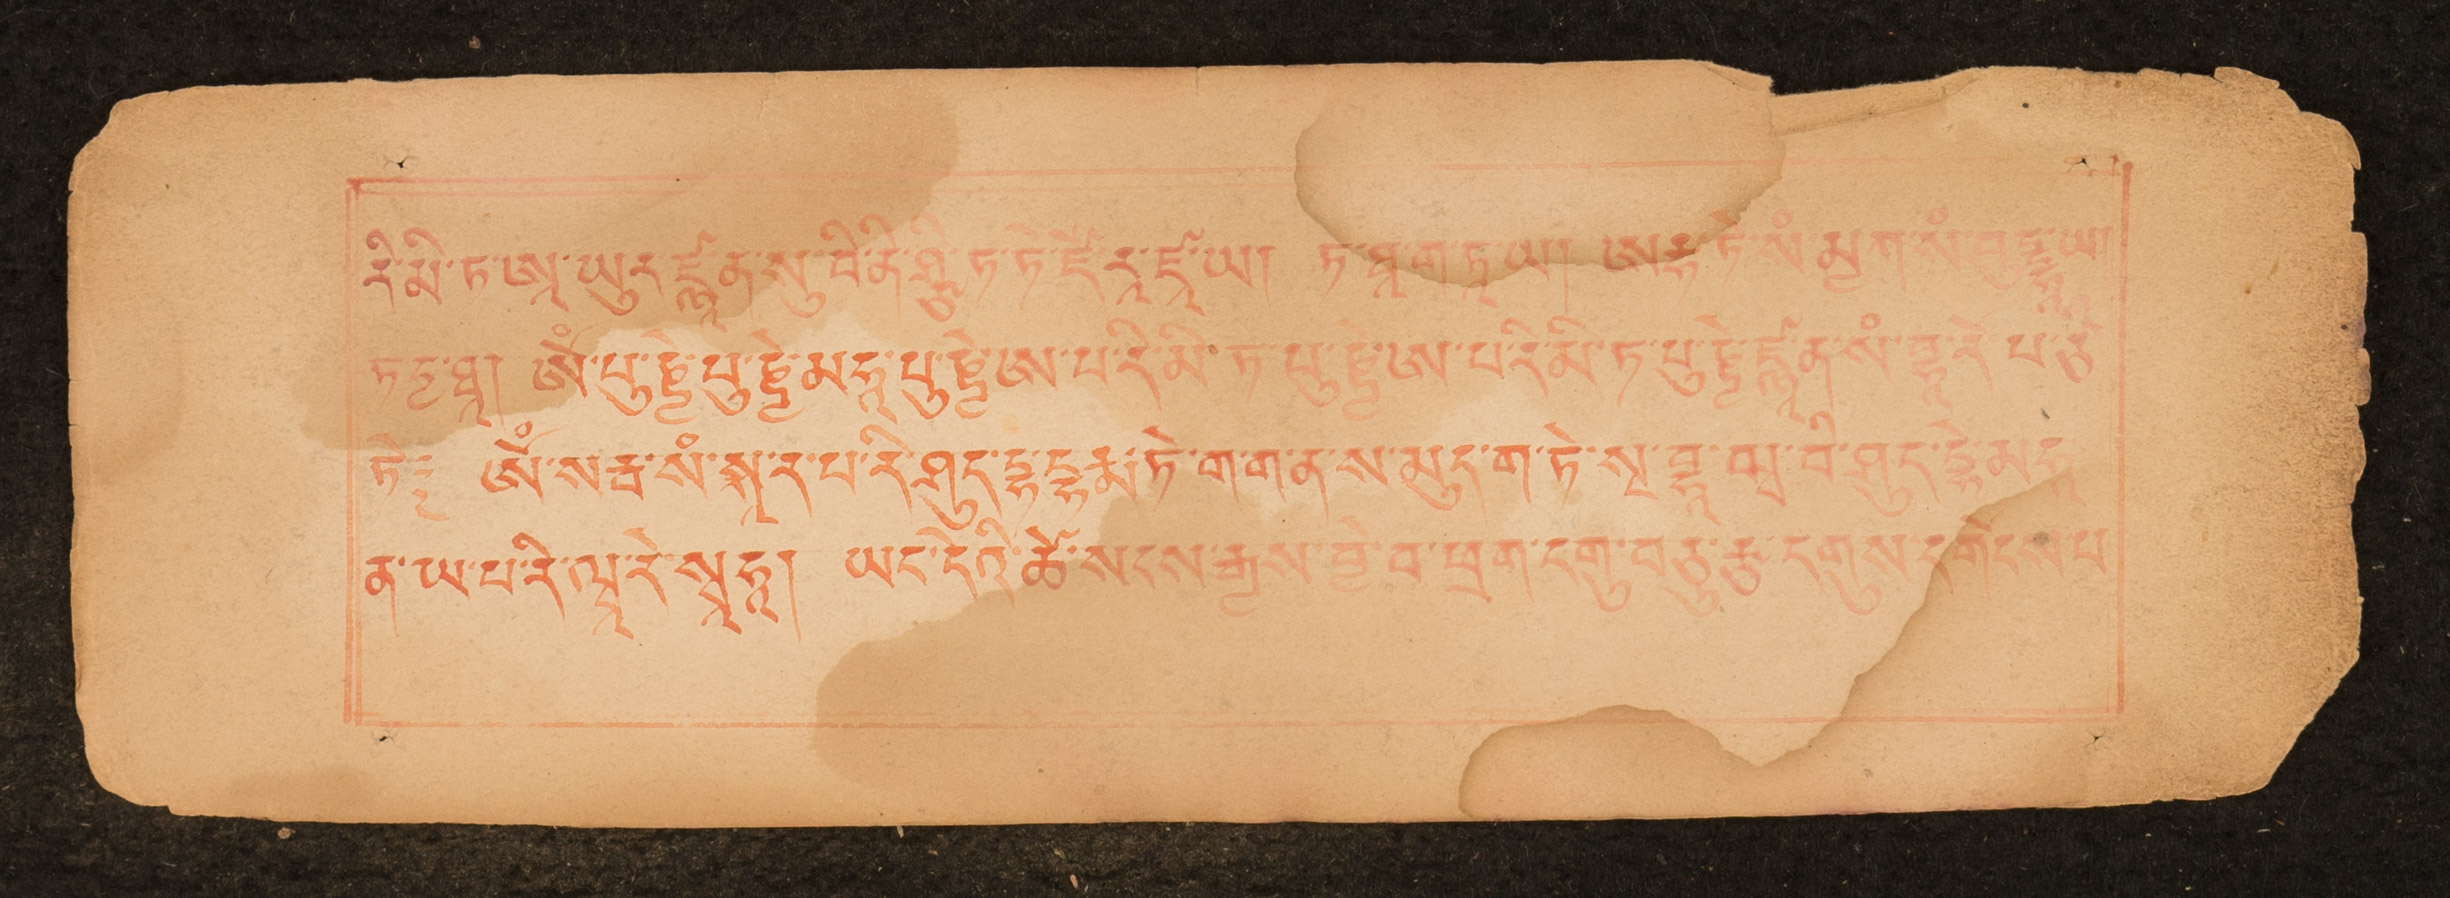 རི་མི་ཏ་ཨཱ་ཡུར་ཛྙཱན་སུ་བི་ནི་ཤྩི་ཏ་ཏེ་ཛོ་རཱ་ཛཱ་ཡ། ཏ་ཐཱ་ག་ཏཱ་ཡ། ཨརྷ་ཏེ་སཾ་མྱག་སཾ་བུདྡྷཱ་ཡ།
ཏདྱ་ཐཱ། ཨོཾ་པུ་ཎྱེ་པུ་ཎྱེ་མཧཱ་པུ་ཎྱེ་ཨ་པ་རི་མི་ཏ་པུ་ཎྱེ་ཨ་པ་རི་མི་ཏ་པུ་ཎྱེ་ཛྙཱན་སཾ་བྷཱ་རེ་པ་ཙི
ཏེ། ཨོཾ་སརྦ་སཾ་སྐཱ་ར་པ་རི་ཤུད་དྷ་དྷརྨ་ཏེ་ག་ག་ན་ས་མུད་ག་ཏེ་སྭ་བྷཱ་ཝ་བི་ཤུད་དྷེ་མཧཱ
ན་ཡ་པ་རི་ཝཱ་རེ་སྭཱ་ཧཱ། ཡང་དེའི་ཚེ་སངས་རྒྱས་བྱེ་བ་ཕྲག་དགུ་བཅུ་རྩ་དགུས་དགོངས་པ